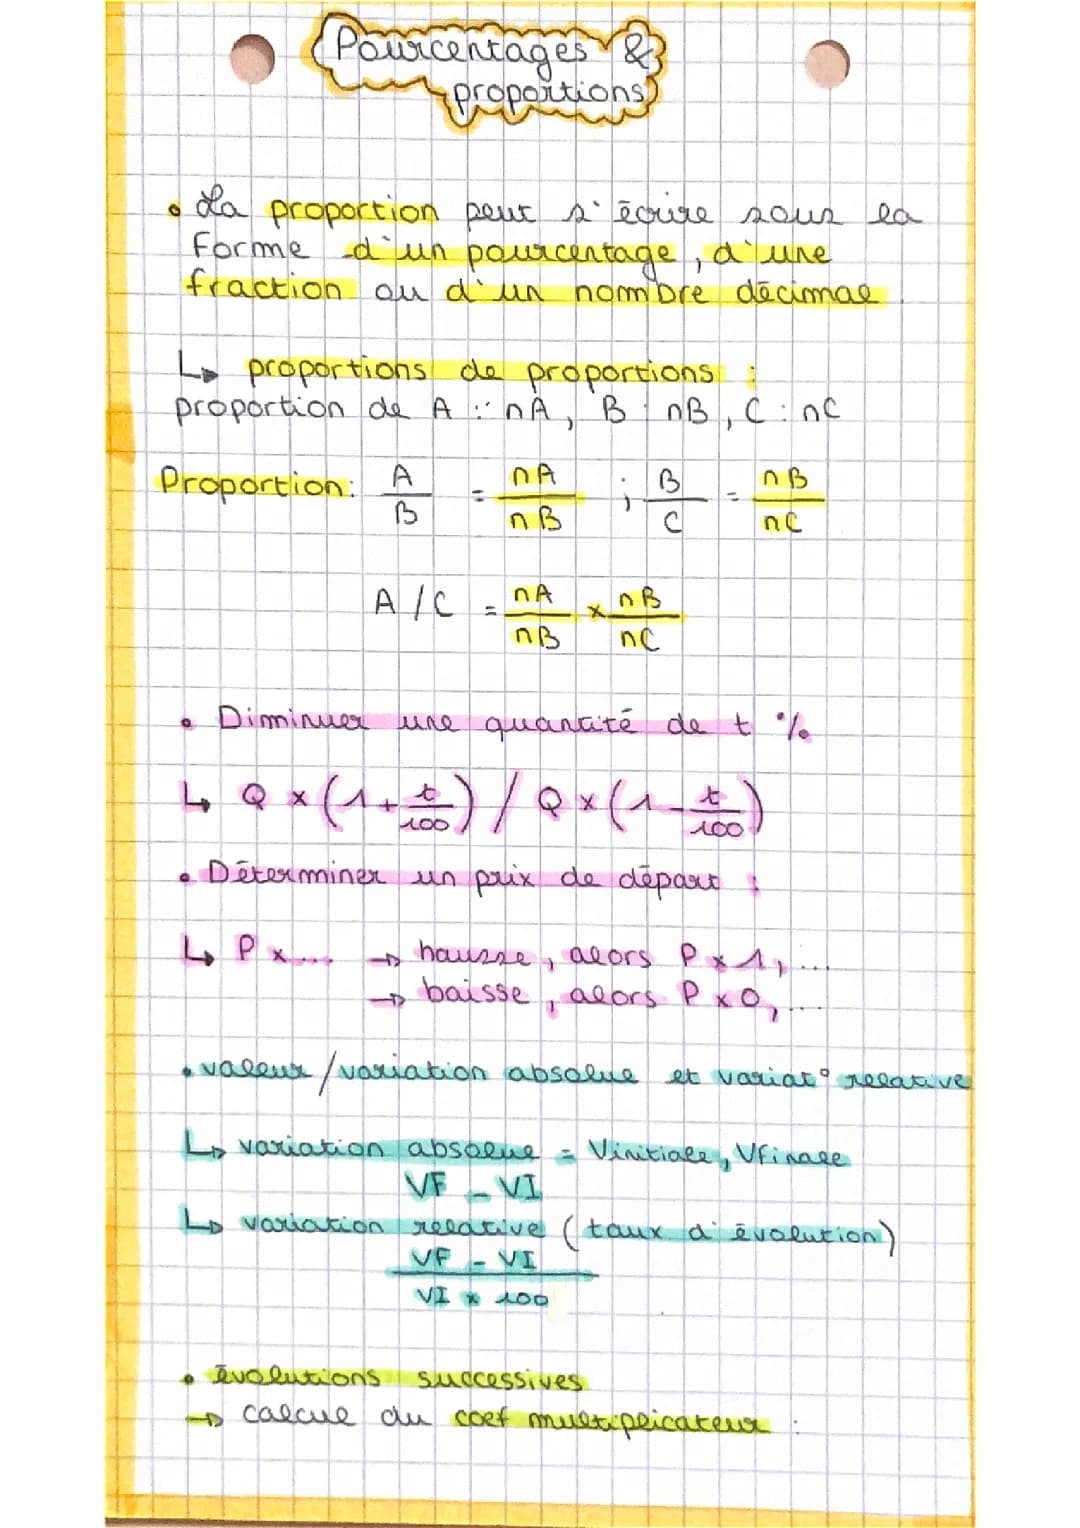 Pourcentages &
proportions
• La proportion peut s'écrire sous la
forme d'un pourcentage, d'une
fraction ou d'un nombre décimal.
↳ proportions de proportions :
proportion de A : nA, B : nB, C : nC
Proportion: A/B = nA/nB ; B/C = nB/nC
A/C = nA/nB x nB/nC
• Diminuer une quantité de t %
↳ Q x (1 + t/100) / Q x (1 - t/100)
• Déterminer un prix de départ :
↳ P x ... → hausse, alors P x 1, ...
→ baisse, alors P x 0, ...
• valeur/variation absolue et variat° relative
↳ variation absolue = Vinitiale, Vfinale
VF - VI
↳ variation relative (taux d'évolution)
VF - VI
VI x 100
• évolutions successives
→ calcul du coef multiplicateur :